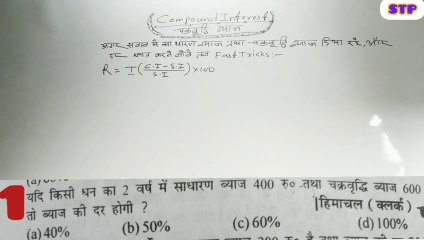 STP
Compound Interest
चक्रवृद्धि ब्याज
अगर सवाल में साधारण ब्याज तथा चक्रवृद्धि ब्याज दिया हो, और
दर ज्ञात करने बोले तब Fast Tricks :-
R = T(C.I - S.I / S.I) × 100
1 यदि किसी धन का 2 वर्ष में साधारण ब्याज 400 रु० तथा चक्रवृद्धि ब्याज 600
तो ब्याज की दर होगी ? |हिमाचल ( क्लर्क )
(a) 40% (b) 50% (c) 60% (d) 100%